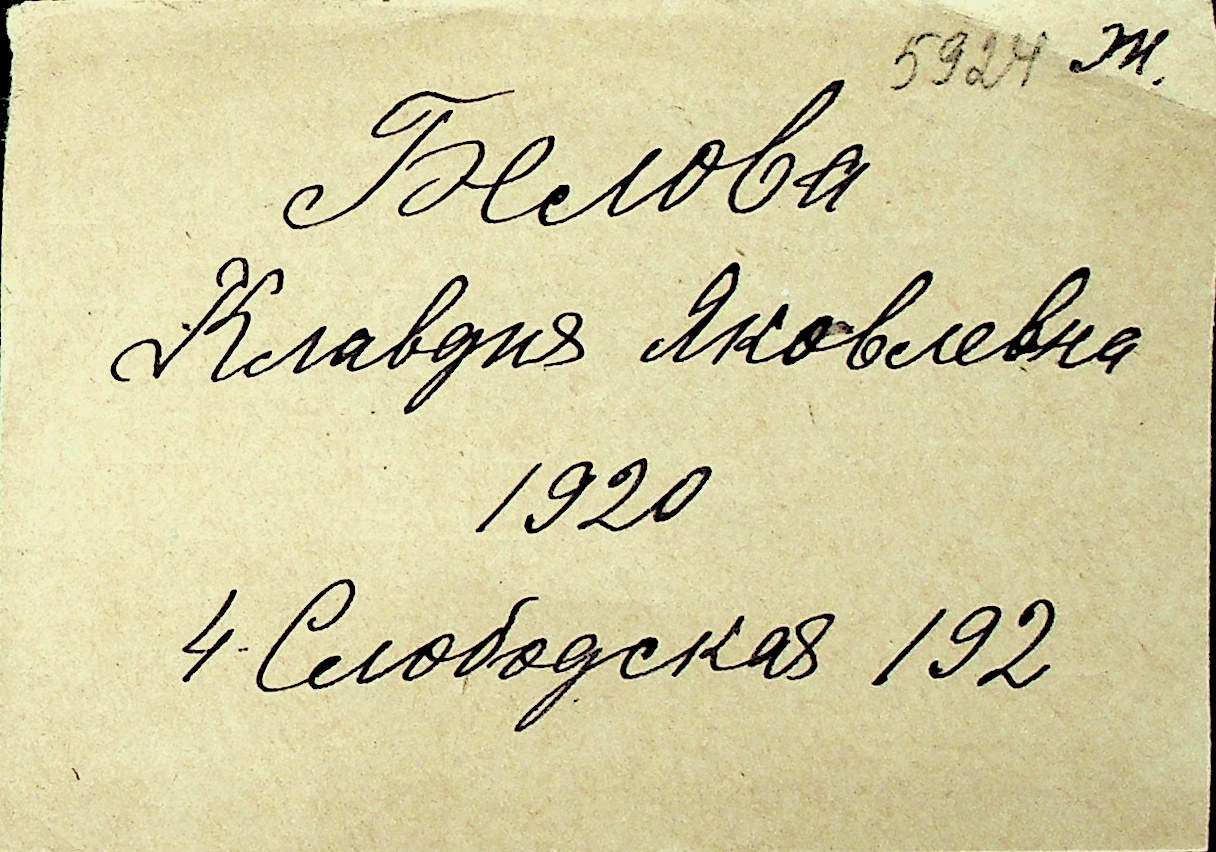 5924 Ж.
Белова
Клавдия Яковлевна
1920
4-Слободская 192